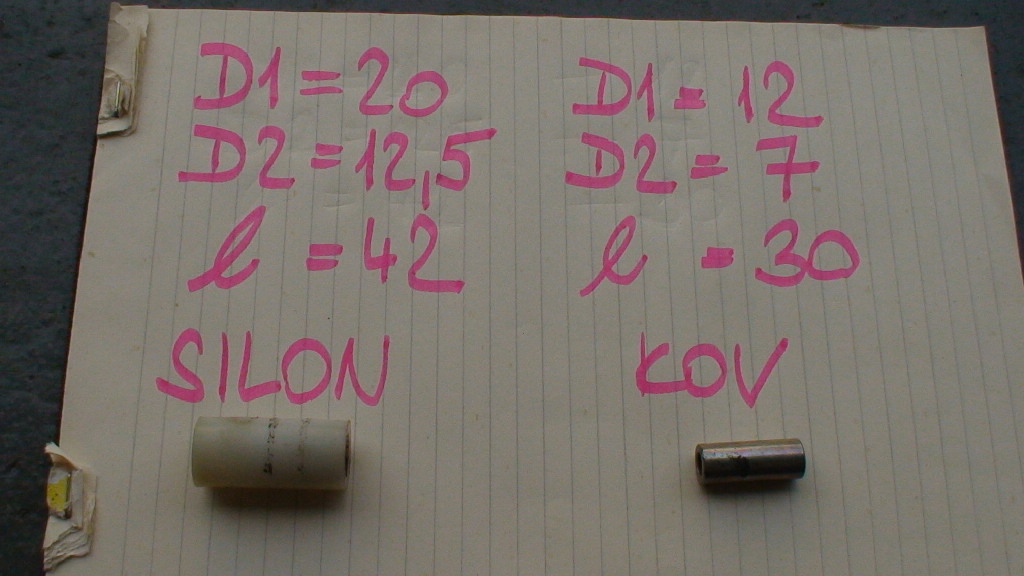 D1=20
D2=12,5
l=42
SILON
D1=12
D2=7
l=30
KOV